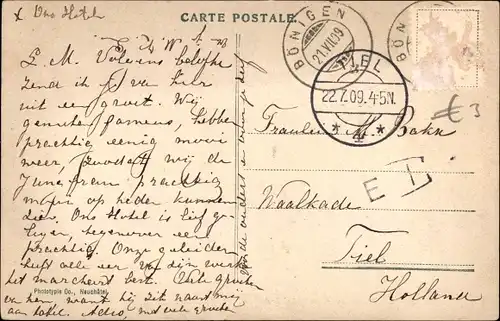 x Ons Hotel
CARTE POSTALE.
BÖNIGEN
21.VII.09
BÖN
TIEL
22.7.09.4-5N.
* 4 *
€ 3
L. M. Volgens belofte
zend ik U van hier
uit een groet. Wij
genieten fameus, hebben
prachtig eenig mooi
weer, zoodat wij de
Jungfrau prachtig
mooi op heden kunnen
zien. Ons Hotel is lief ge-
legen, tegenover een
prachtig. Onze geleider
heeft alle eer van zijn werk
het marcheert best. Vele groeten
van hem, want hij zit naast mij
aan tafel. Adio, met vele groeten
Fräulein M. Bakx
ET
Waalkade
Tiel
Holland
Phototypie Co., Neuchâtel